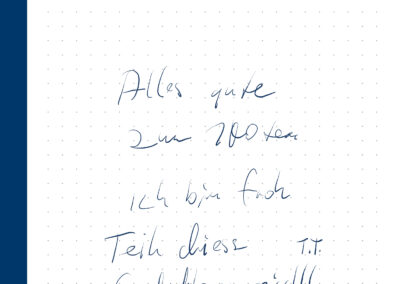 Alles gute
zum 100ten
ich bin froh
Teih diess T.T.